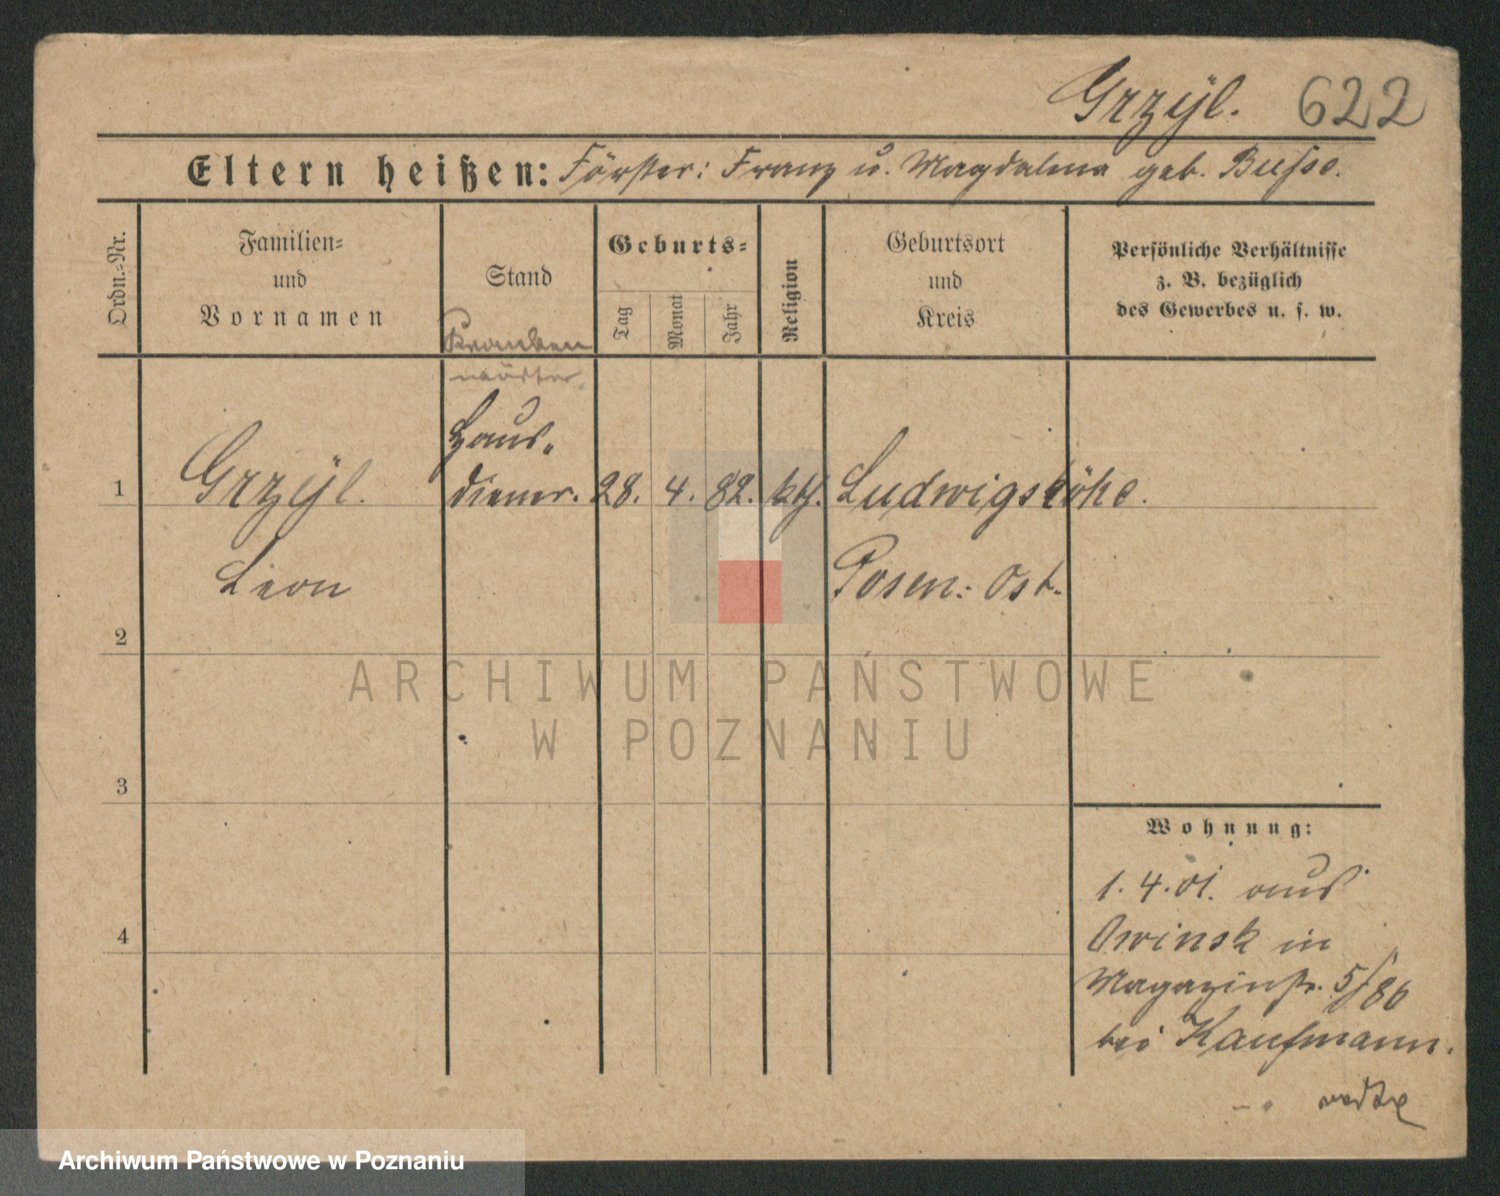 Grzyl. 622
Eltern heißen: Förster: Franz u. Magdalena geb. Busse.
Ordn.-Nr.
Familien-
und
Vornamen
Stand
Geburts-
Tag
Monat
Jahr
Religion
Geburtsort
und
Kreis
Persönliche Verhältnisse
z. B. bezüglich
des Gewerbes u. s. w.
Kranken
wärter.
Haus-
1 Grzyl. diener. 28. 4. 82. kth. Ludwigshöhe.
Leon Posen: Ost.
2
ARCHIWUM PAŃSTWOWE
W POZNANIU
3
Wohnung:
1. 4. 01. aus
4 Owinsk in
Magazinstr. 5/86
bei Kaufmann.
Archiwum Państwowe w Poznaniu